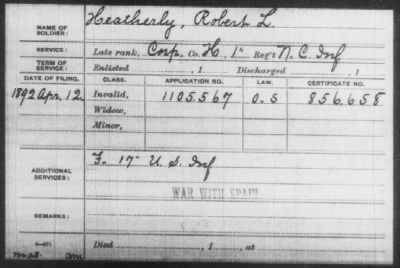 NAME OF SOLDIER: Heatherly, Robert L.
SERVICE: Late rank, Corp, Co. H, 1" Reg't N. C. Inf
TERM OF SERVICE: Enlisted , 1 Discharged , 1
DATE OF FILING. CLASS. APPLICATION NO. LAW. CERTIFICATE NO.
1892 Apr. 12 Invalid, 1105567 O.S 856.658
Widow,
Minor,
ADDITIONAL SERVICES: F. 17" U. S. Inf
WAR WITH SPAIN
REMARKS:
Died , 1 , at